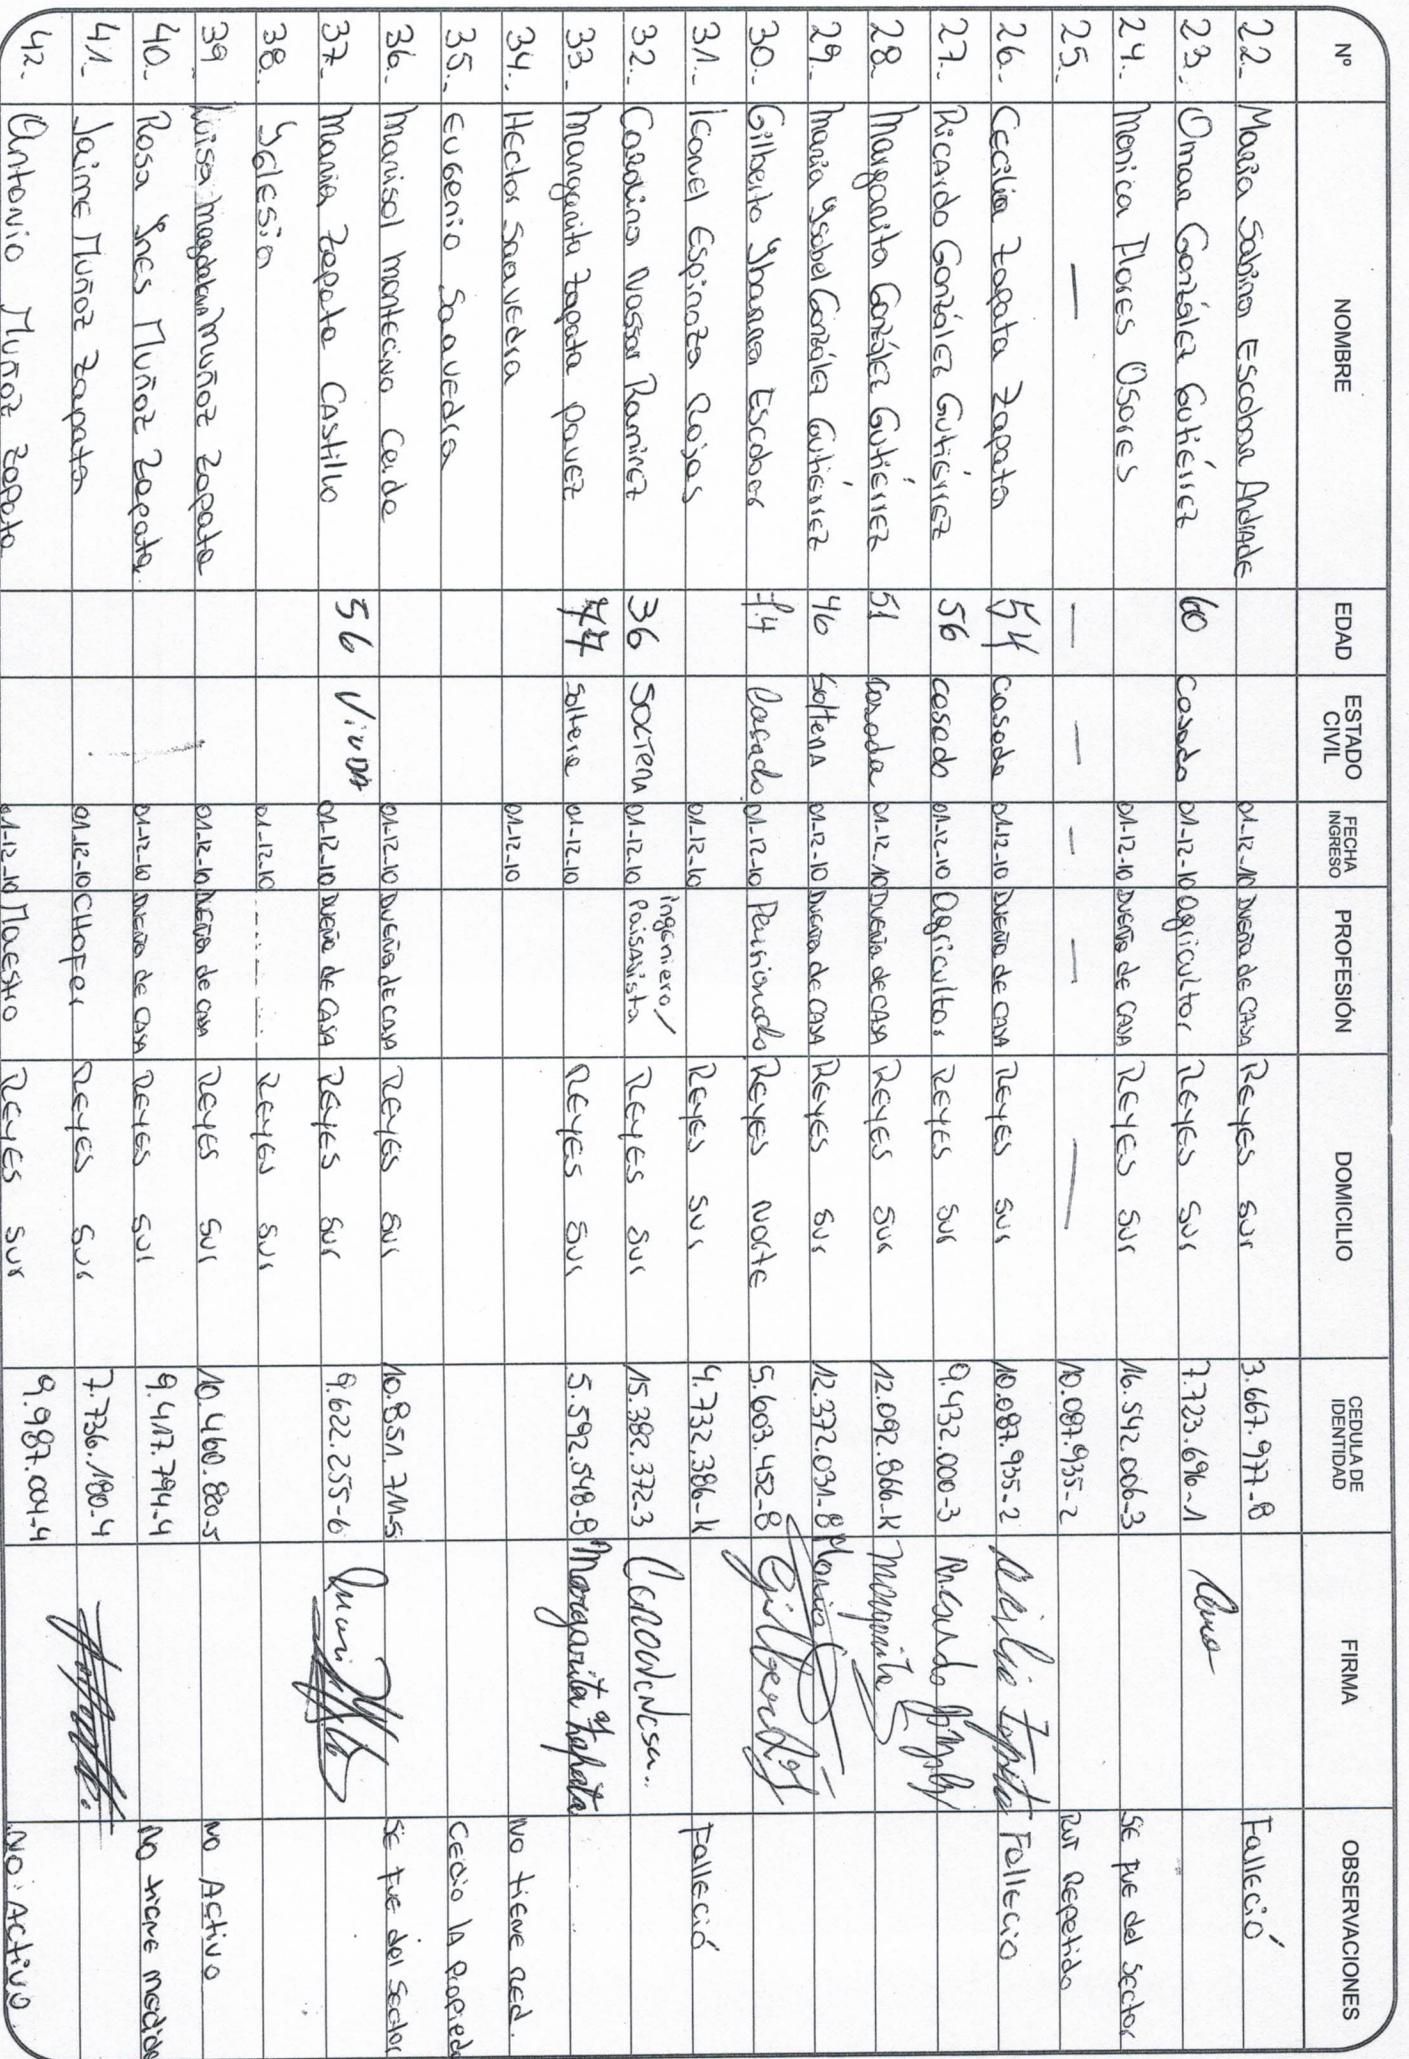 Nº NOMBRE EDAD ESTADO CIVIL FECHA INGRESO PROFESIÓN DOMICILIO CEDULA DE IDENTIDAD FIRMA OBSERVACIONES
22.- Maria Sabina Escobar Andrade 01-12-10 Dueña de casa Reyes sur 3.667.977-8 Falleció
23.- Omar González Gutiérrez 60 casado 01-12-10 agricultor Reyes sur 7.723.696-1
24.- Monica Flores Osores 01-12-10 Dueña de casa Reyes sur 16.542.006-3 se fue del sector
25.- — — — — — — 10.087.935-2 Rut Repetido
26.- Cecilia Zapata Zapata 54 casada 01-12-10 Dueña de casa Reyes sur 10.087.935-2 Fallecio
27.- Ricardo González Gutiérrez 56 casado 01-12-10 agricultor Reyes sur 9.432.000-3
28.- Margarita González Gutiérrez 51 casada 01-12-10 Dueña de casa Reyes sur 12.092.866-K Margarita
29.- Maria Ysabel González Gutiérrez 46 soltera 01-12-10 Dueña de casa Reyes sur 12.372.031-8 Maria
30.- Gilberto Ybarra Escobar 74 Casado 01-12-10 Pensionado Reyes Norte 5.603.452-8
31.- Leonel Espinoza Rojas 01-12-10 Reyes sur 4.732.386-K Falleció
32.- Carolina Nassar Ramirez 36 soltera 01-12-10 ingeniero/ Paisajista Reyes sur 15.382.372-3
33.- Margarita Zapata pavez 77 soltera 01-12-10 Reyes sur 5.592.548-8 Margarita Zapata
34.- Hector Saavedra 01-12-10 No tiene red.
35.- Eugenio Saavedra Cedio la propied
36.- Marisol Montecino Cerda 01-12-10 Dueña de casa Reyes sur 10.851.711-5 se fue del sector
37.- Maria Zapata Castillo 56 Viuda 01-12-10 Dueña de casa Reyes sur 9.622.255-6
38.- Yglesia 01-12-10 Reyes sur
39.- Luisa Magdalena Muñoz Zapata 01-12-10 Dueña de casa Reyes sur 10.460.820-5 No Activo
40.- Rosa Ynes Muñoz Zapata. 01-12-10 Dueña de casa Reyes sur 9.417.794-4 No tiene medido
41.- Jaime Muñoz Zapata 01-12-10 Chofer Reyes sur 7.736.180-4
42.- Antonio Muñoz Zapata 01-12-10 Maestro Reyes sur 9.987.004-4 No Activo.